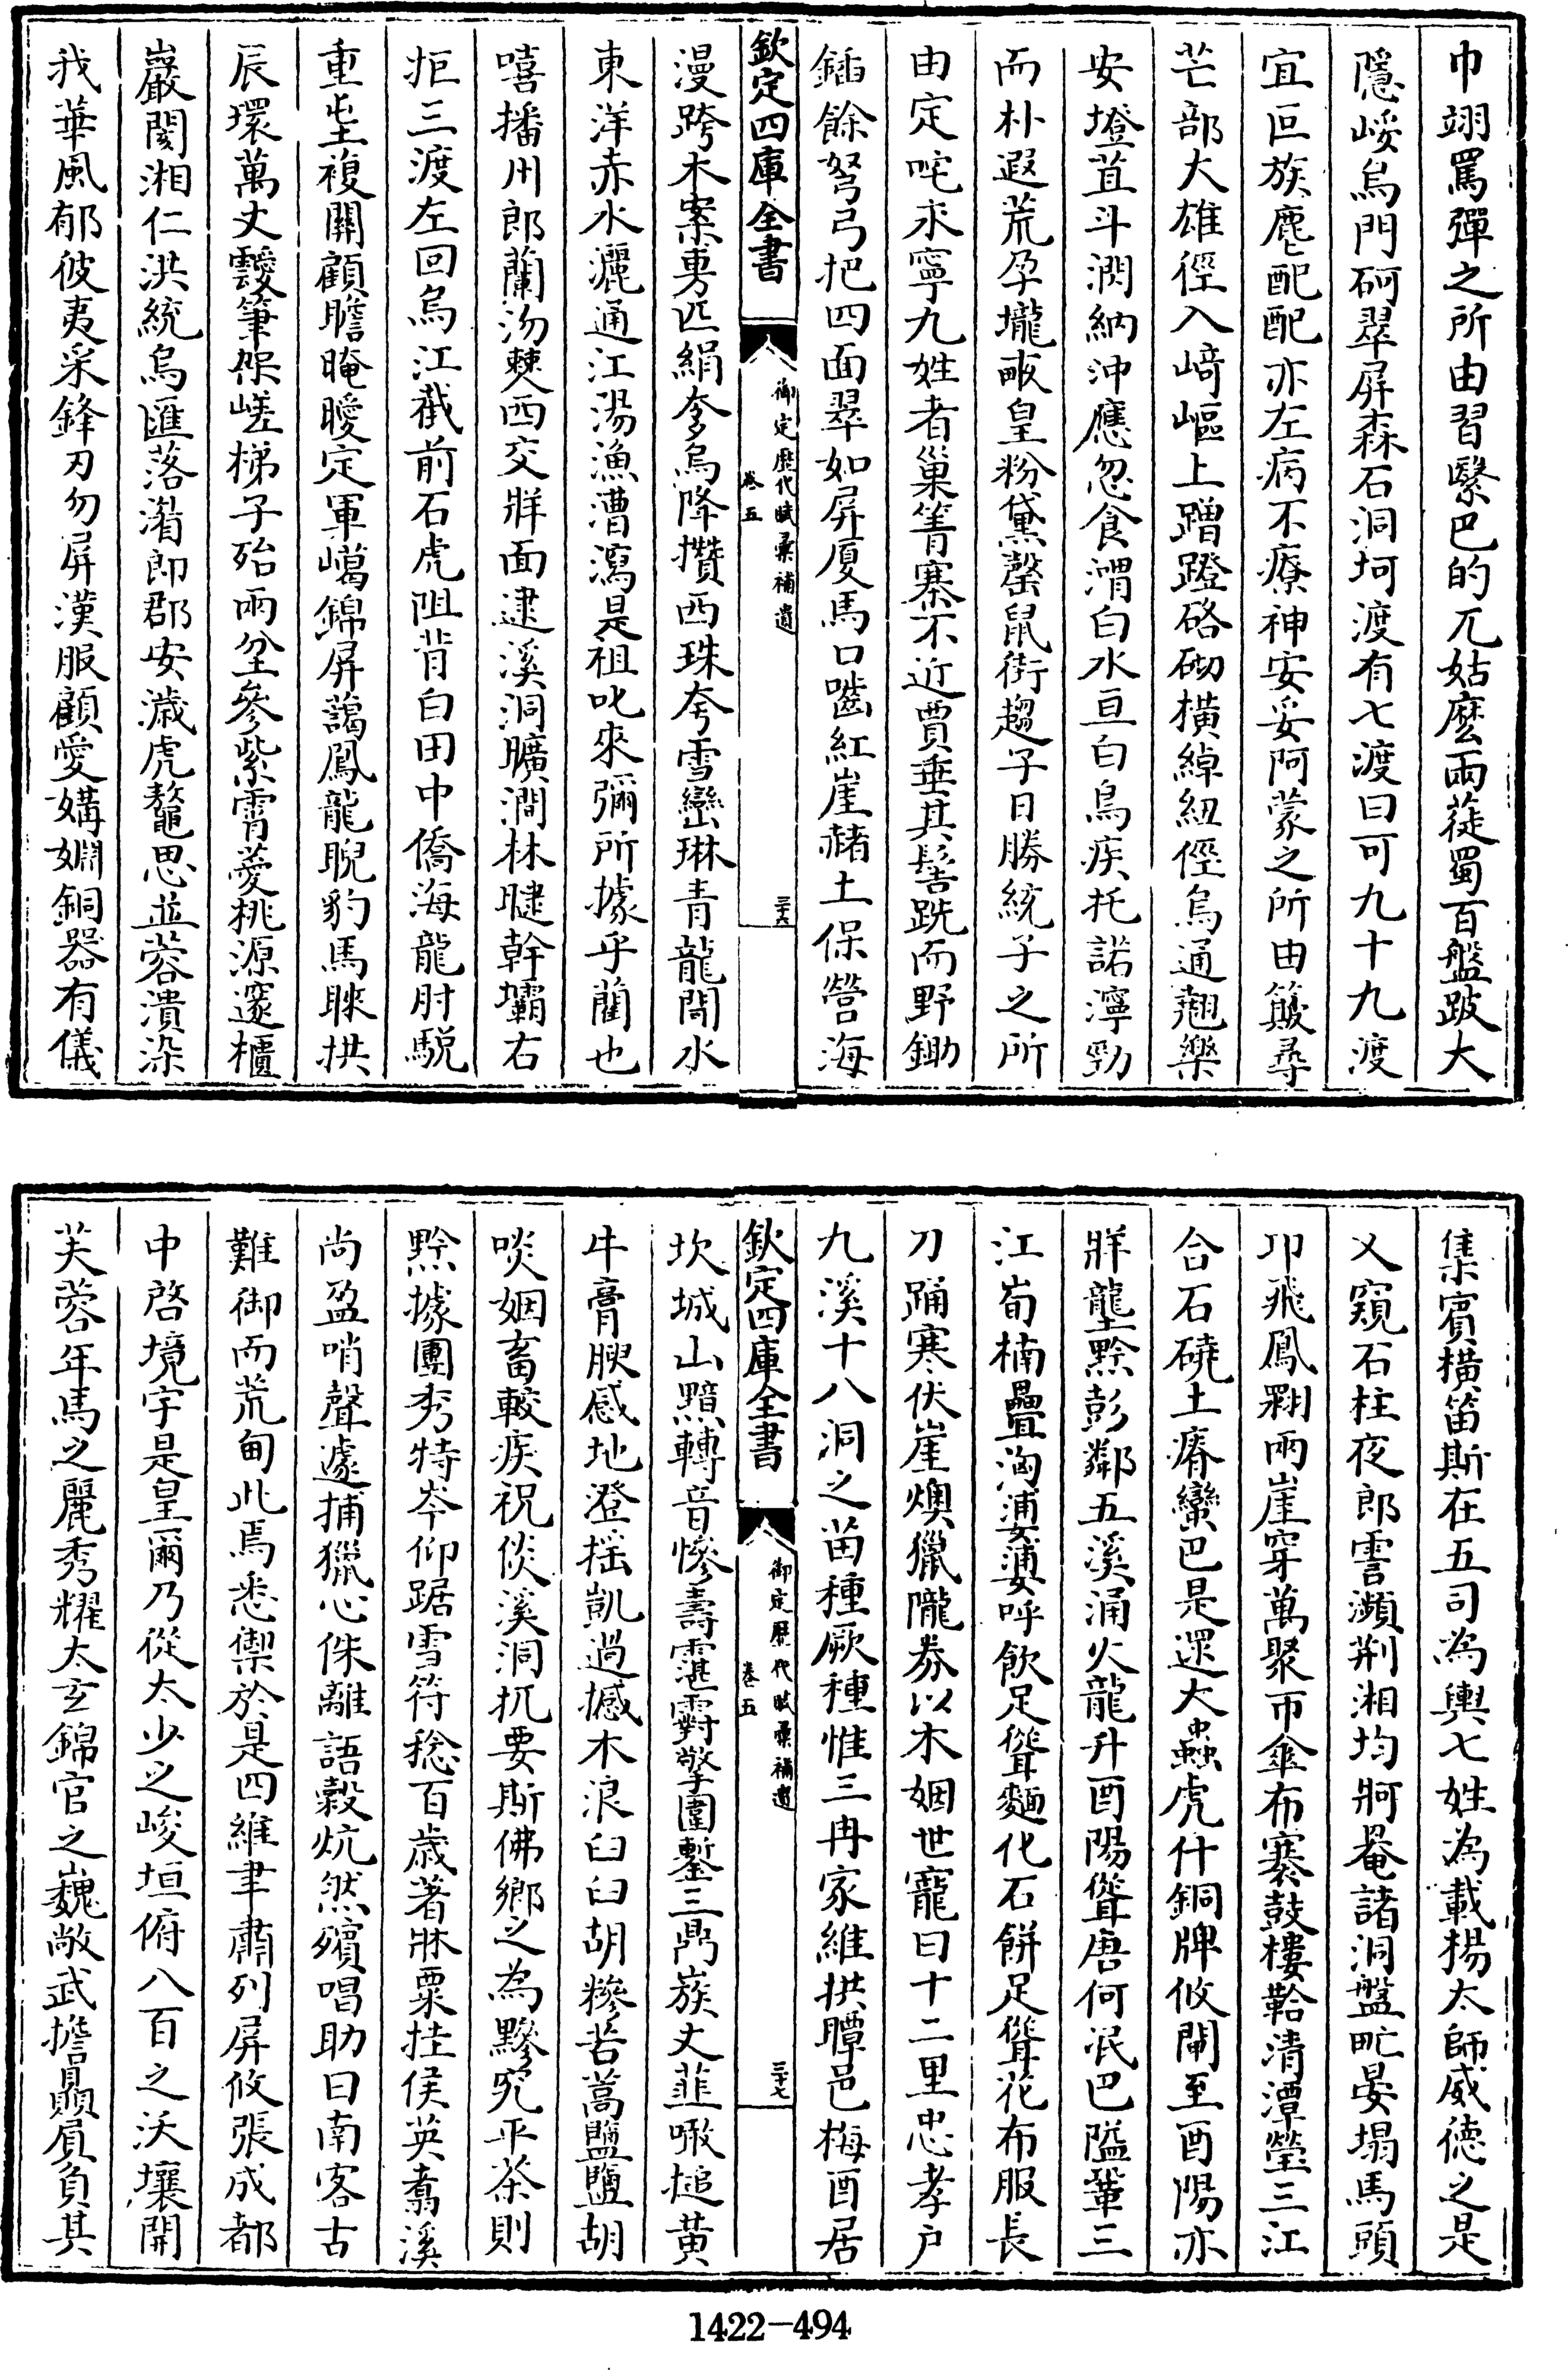 巾翊罵彈之所由習繄巴的兀姑麽兩蓰蜀百盤跛大
隱崚烏門砢翠屏森石洞坷渡有七渡曰可九十九渡
宜叵族麀配配亦左病不療神安妥阿蒙之所由簸尋
芒部大雄徑入﨑嶇上蹭蹬硌砌橫綽紐俓烏通翹樂
安墱苴斗濶納沖應忽食渭白水亘白烏疾托諾濘勁
而朴遐荒孕壠畈皇粉黛罄鼠街趨子日勝統子之所
由定咤求寧九姓者巢箐寨不近賈垂其髻跣而野鋤
鍤餘弩弓把四面翠如屏厦馬口嚙紅崖赭土保營海
欽定四庫全書
御定歷代賦彙補遺
卷五
三十六
漫跨木案專匹絹奓烏降攢西珠夸雪巒琳青龍閜水
東洋赤水灑通江湯漁漕瀉是祖叱來彌所據乎藺也
嘻播州郎蘭沕僰西交牂面逮溪洞曠澗林睫幹壩右
拒三渡左回烏江截前石虎阻背白田中僑海龍肘駾
重屯複關顧瞻晻曖定軍嶱錦屏藹鳳龍睨豹馬睞拱
辰環萬丈靉筆架嵯梯子殆兩坌參紫霄薆桃源邃櫃
巖閡湘仁洪統烏匯落潲郎郡安濊虎鼇思並蓉潰染
我華風郁彼夷采鋒刃勿屏漢服顧愛媾嫺銅器有儀
集賓橫笛斯在五司為輿七姓為載揚太師威德之是
乂窺石柱夜郎雩瀕荆湘均牁罨諸洞盤甿晏塌馬頭
卭飛鳳翱兩崖穿萬聚帀傘布寨鼓樓鞈清潭瑩三江
合石磽土瘠蠻巴是還大蟲虎什銅牌攸閘至酉陽亦
牂壟黔彭鄰五溪涌火龍升酉陽聳唐何泯巴隘鞏三
江荀楠疊洶浦婆呼飲足聳麯化石餅足聳花布服長
刀踊寒伏崖燠獵隴券以木姻世寵曰十二里忠孝戶
九溪十八洞之苗種厥種惟三冉家維拱瞫邑梅酉居
欽定四庫全書
御定歷代賦彙補遺
卷五
三十七
坎城山黯轉音慘壽霮䨴擎圍鏨三鼎嶘丈韮噉䭔黃
牛膏腴感地澄摇凱過撼木浪臼臼胡糝苦蒿鹽鹽胡
啖姻畜較疾祝倓溪洞扤要斯佛鄉之為黲究平茶則
黔據團秀特岑仰踞雪符稔百歲著牀粟挂侯英翥溪
尚盈哨聲遽捕獵心侏離語穀炕然殯唱助曰南客古
難御而荒甸此焉悉禦於是四維聿肅列屏攸張成都
中啓境宇是皇爾乃從太少之峻垣俯八百之沃壤開
芙蓉年馬之麗秀耀太玄錦官之巍敞武擔贔屓負其
1422-494